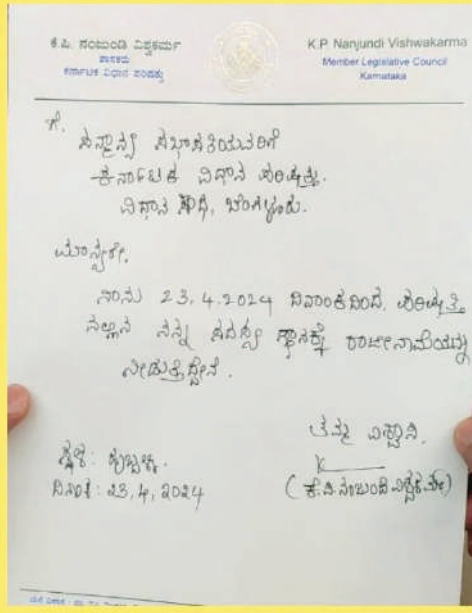 ಕೆ.ಪಿ. ನಂಜುಂಡಿ ವಿಶ್ವಕರ್ಮ
ಶಾಸಕರು
ಕರ್ನಾಟಕ ವಿಧಾನ ಪರಿಷತ್ತು
K.P Nanjundi Vishwakarma
Member Legislative Council
Karnataka
ಗೆ.
ಸನ್ಮಾನ್ಯ ಸಭಾಪತಿಯವರಿಗೆ
ಕರ್ನಾಟಕ ವಿಧಾನ ಪರಿಷತ್ತು.
ವಿಧಾನ ಸೌಧ, ಬೆಂಗಳೂರು.
ಮಾನ್ಯರೇ,
ನಾನು 23.4.2024 ದಿನಾಂಕದಿಂದ, ಪರಿಷತ್ತಿ
ನಲ್ಲಿನ ನನ್ನ ಸದಸ್ಯ ಸ್ಥಾನಕ್ಕೆ ರಾಜೀನಾಮೆಯನ್ನು
ನೀಡುತ್ತಿದ್ದೇನೆ.
ತಮ್ಮ ವಿಶ್ವಾಸಿ,
ಸ್ಥಳ: ಹುಬ್ಬಳ್ಳಿ.
ದಿನಾಂಕ: 23, 4, 2024
(ಕೆ.ಪಿ.ನಂಜುಂಡಿ ವಿಶ್ವಕರ್ಮ)